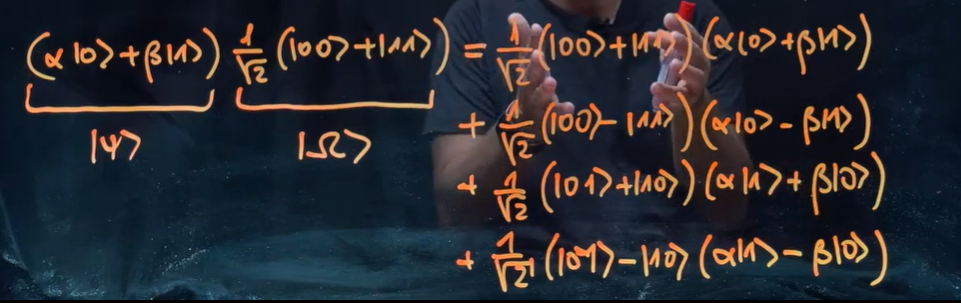 (α|0⟩+β|1⟩) 1/√2 (|00⟩+|11⟩) = 1/√2 (|00⟩+|11⟩)(α|0⟩+β|1⟩)
|Ψ⟩ |Ω⟩ + 1/√2 (|00⟩-|11⟩)(α|0⟩-β|1⟩)
+ 1/√2 (|01⟩+|10⟩)(α|1⟩+β|0⟩)
+ 1/√2 (|01⟩-|10⟩(α|1⟩-β|0⟩)